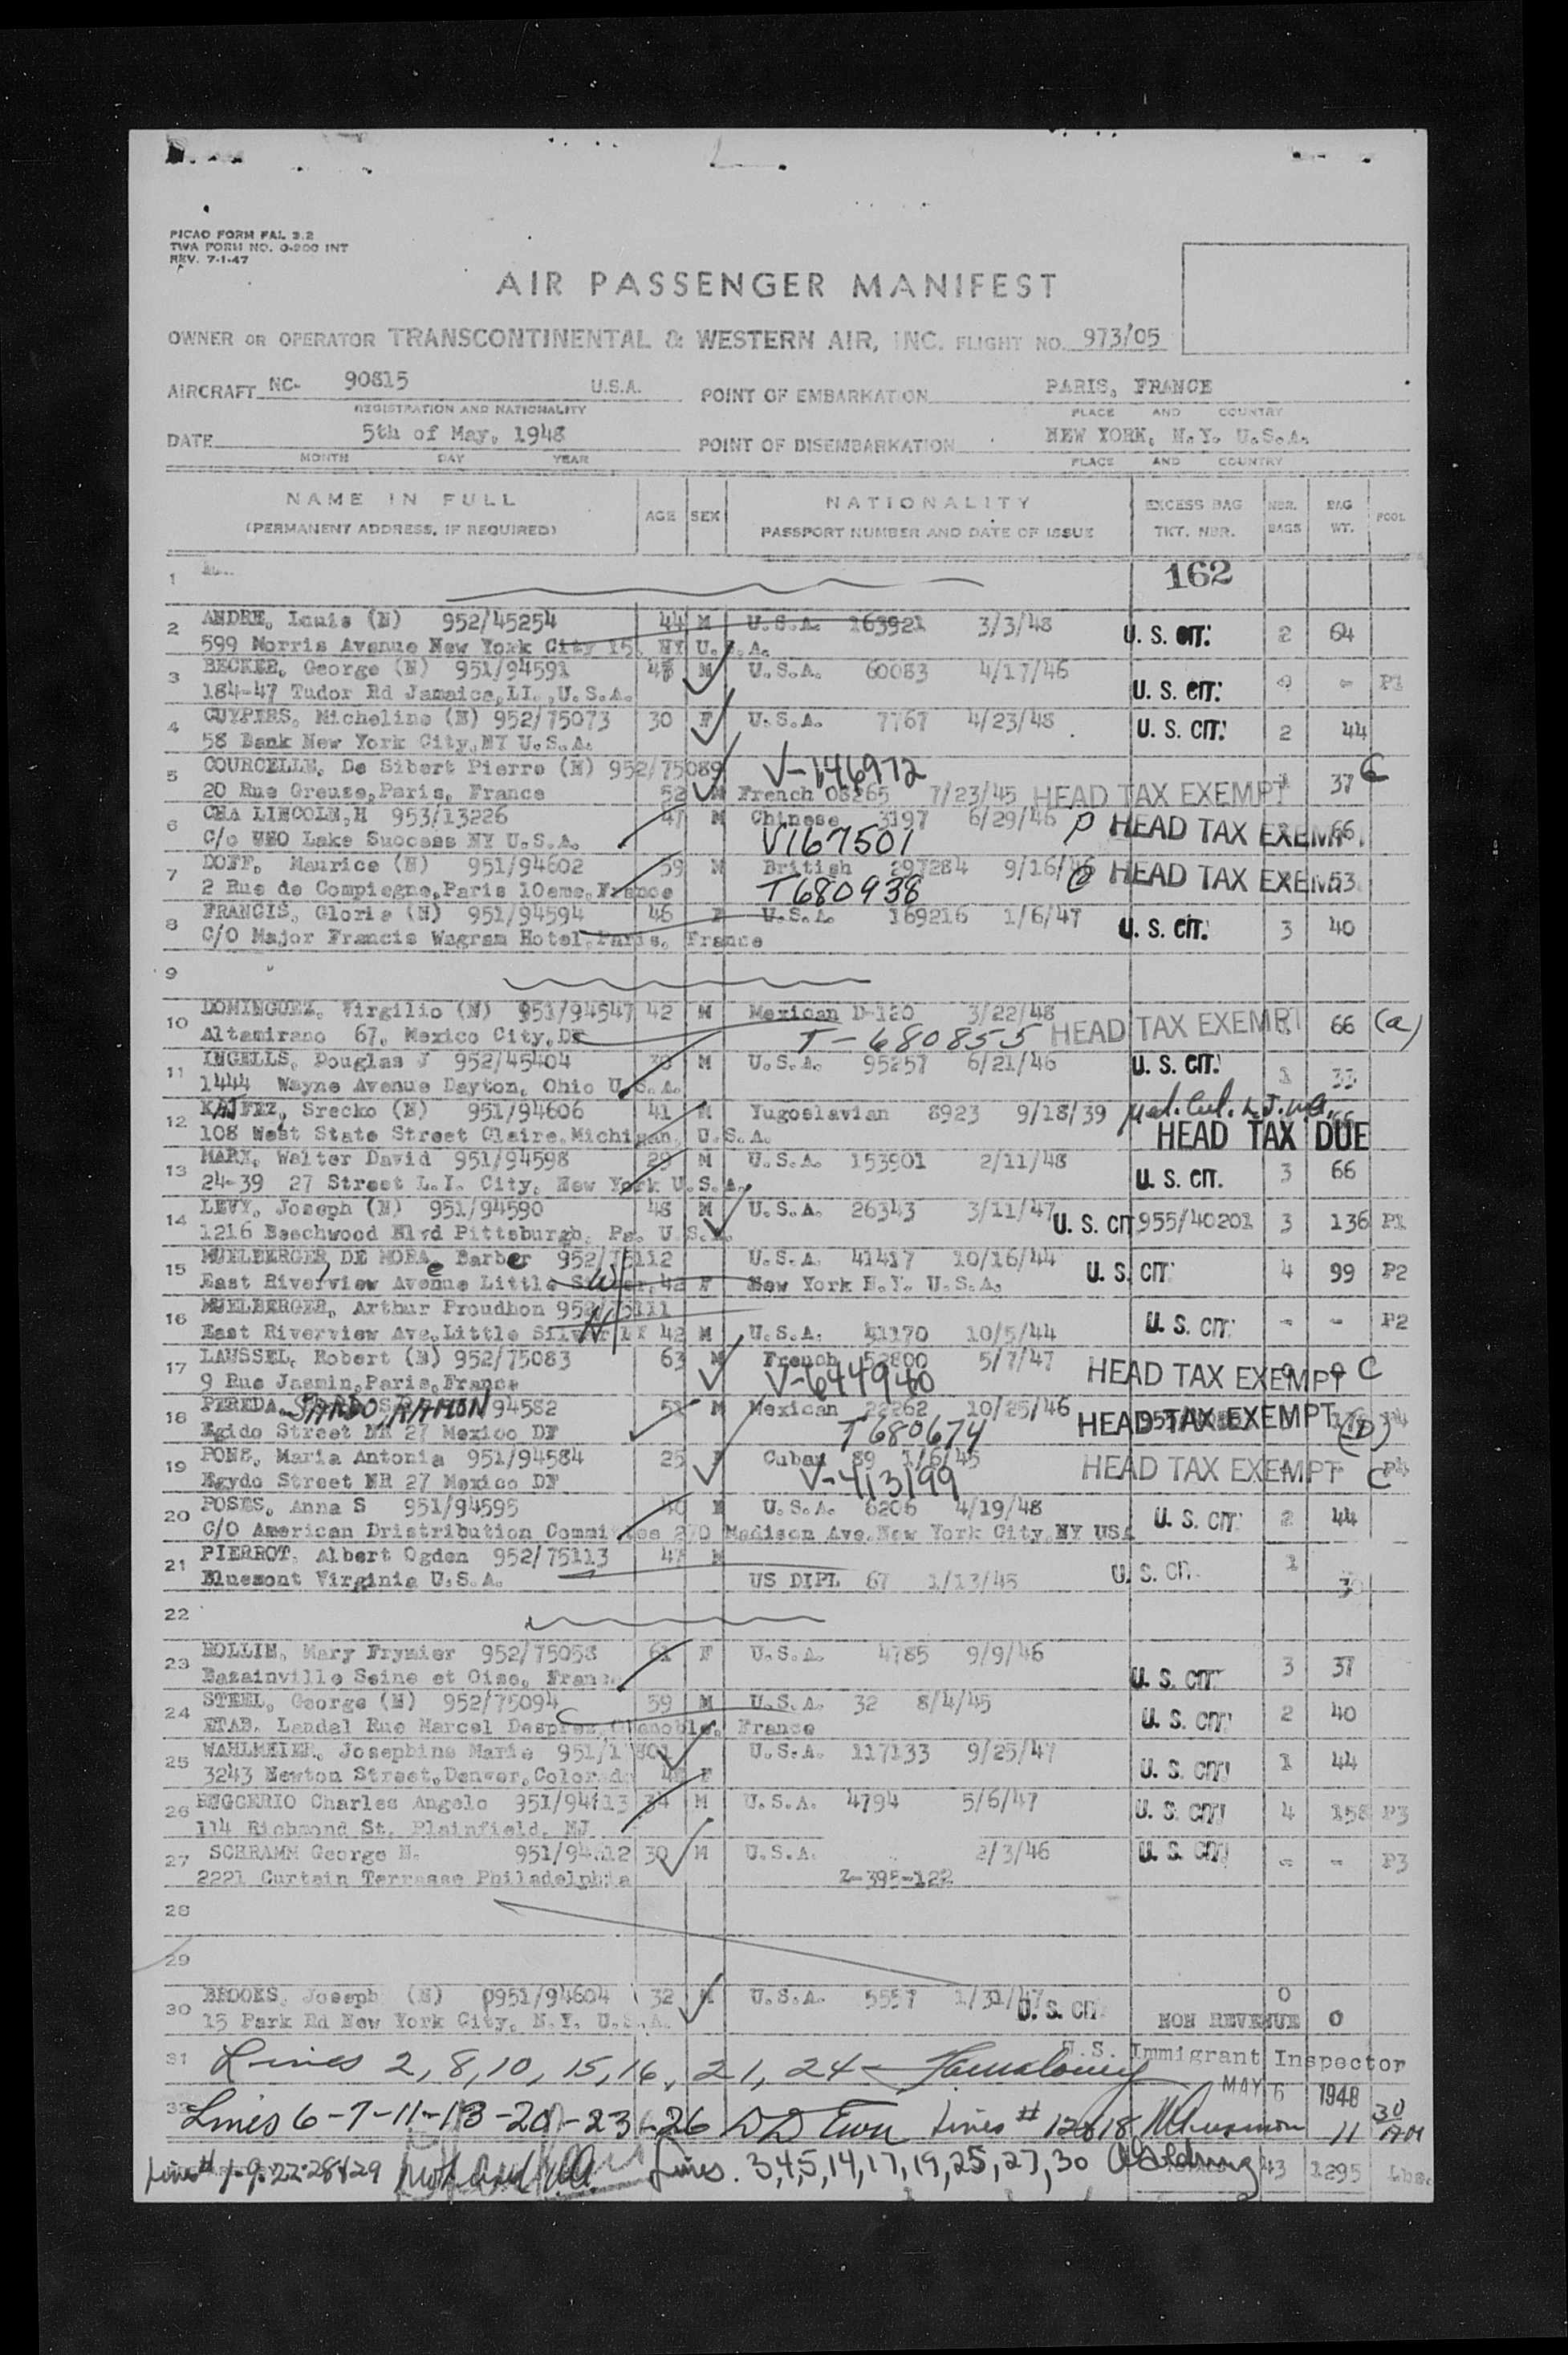 PICAO FORM FAL 3.2
TWA FORM NO. 0-900 INT
REV. 7-1-47
AIR PASSENGER MANIFEST
OWNER OR OPERATOR TRANSCONTINENTAL & WESTERN AIR, INC. FLIGHT NO. 973/05
AIRCRAFT NC- 90815 U.S.A. POINT OF EMBARKATION PARIS, FRANCE
REGISTRATION AND NATIONALITY PLACE AND COUNTRY
DATE 5th of May, 1948 POINT OF DISEMBARKATION NEW YORK, N.Y. U.S.A.
MONTH DAY YEAR PLACE AND COUNTRY
NAME IN FULL AGE SEX NATIONALITY EXCESS BAG NBR. BAG POOL
(PERMANENT ADDRESS, IF REQUIRED) PASSPORT NUMBER AND DATE OF ISSUE TKT. NBR. BAGS WT.
1 162
2 ANDRE, Louis (N) 952/45254 44 M U.S.A. 163921 3/3/48 U. S. CIT. 2 64
599 Morris Avenue New York City 15, NY U.S.A.
3 BECKER, George (N) 951/94591 M U.S.A. 60083 4/17/46 U. S. CIT. - P1
184-47 Tudor Rd Jamaica,LI.,U.S.A.
4 CUYPERS, Micheline (N) 952/75073 30 F U.S.A. 7767 4/23/48 U. S. CIT. 2 44
58 Bank New York City,NY U.S.A.
5 COURCELLE, De Sibert Pierre (N) 952/75089 V-146972
20 Rue Greuze,Paris, France 52 M French 08265 7/23/45 HEAD TAX EXEMPT 1 37 C
6 CHA LINCOLN,H 953/13226 47 M Chinese 3197 6/29/46 P HEAD TAX EXEMPT 66
C/o UNO Lake Success NY U.S.A. V167501
7 DOFF, Maurice (N) 951/94602 59 M British 297284 9/16/46 C HEAD TAX EXEMPT 53
2 Rue de Compiegne,Paris 10eme,France T680938
8 FRANCIS, Gloria (N) 951/94594 46 F U.S.A. 169216 1/6/47 U. S. CIT. 3 40
C/O Major Francis Wagram Hotel,Paris, France
9
10 DOMINGUEZ, Virgilio (N) 951/94547 42 M Mexican D-120 3/22/48 HEAD TAX EXEMPT 66 (a)
Altamirano 67, Mexico City,DF T-680855
11 INGELLS, Douglas J 952/45404 M U.S.A. 95257 6/21/46 U. S. CIT. 1 33
1444 Wayne Avenue Dayton, Ohio U.S.A.
12 KAJFEZ, Srecko (N) 951/94606 41 M Yugoslavian 8923 9/18/39 66
108 West State Street Claire,Michigan, U.S.A. HEAD TAX DUE
13 MARX, Walter David 951/94598 29 M U.S.A. 153901 2/11/48 U. S. CIT. 3 66
24-39 27 Street L.I. City, New York U.S.A.
14 LEVY, Joseph (N) 951/94590 48 M U.S.A. 26343 3/11/47 U. S. CIT 955/40201 3 136 P1
1216 Beechwood Blvd Pittsburgh, Pa. U.S.A.
15 MUELBERGER DE MORA, Barber 952/75112 U.S.A. 41417 10/16/44 U. S. CIT. 4 99 P2
East Riverview Avenue Little Silver, 42 F New York N.Y. U.S.A.
16 MUELBERGER, Arthur Proudhon 952/75111 U. S. CIT. - - P2
East Riverview Ave,Little Silver NY 42 M U.S.A. 41170 10/5/44
17 LAUSSEL, Robert (N) 952/75083 63 M French 52800 5/7/47 HEAD TAX EXEMPT C
9 Rue Jasmin,Paris,France V-644940
18 PEREDA, SARDO, RAMON 94582 51 M Mexican 22262 10/25/46 HEAD TAX EXEMPT P4
Egido Street NR 27 Mexico DF T680674 (D)
19 PONS, Maria Antonia 951/94584 25 F Cuban 89 1/6/45 HEAD TAX EXEMPT P4
Egydo Street NR 27 Mexico DF V-413199 C
20 POSES, Anna S 951/94595 40 F U.S.A. 6206 4/19/48 U. S. CIT. 2 44
C/O American Dristribution Committee 270 Madison Ave,New York City,NY USA
21 PIERROT, Albert Ogden 952/75113 47 M U. S. CIT. 1
Bluemont Virginia U.S.A. US DIPL 67 1/13/45 30
22
23 ROLLIN, Mary Frymier 952/75058 61 F U.S.A. 4785 9/9/46 U. S. CIT. 3 37
Bazainville Seine et Oise, France
24 STEEL, George (N) 952/75094 59 M U.S.A. 32 8/4/45 U. S. CIT. 2 40
ETAB. Landal Rue Marcel Desprez,Grenoble, France
25 WAHLMEIER, Josephine Marie 951/ U.S.A. 117133 9/25/47 U. S. CIT. 1 44
3243 Newton Street,Denver,Colorado F
26 RUGGERIO Charles Angelo 951/94613 34 M U.S.A. 4794 5/6/47 U. S. CIT. 4 158 P3
114 Richmond St. Plainfield, NJ
27 SCHRAMM George N. 951/94612 30 M U.S.A. 2/3/46 U. S. CIT. - - P3
2221 Curtain Terrasse Philadelphia Z-395-122
28
29
30 BROOKS, Joseph (N) 0951/94604 32 M U.S.A. 5557 1/31/47 U. S. CIT. 0
15 Park Rd New York City, N.Y. U.S.A. NON REVENUE 0
31 Lines 2, 8, 10, 15, 16, 21, 24 U.S. Immigrant Inspector
MAY 6 1948
32 Lines 6-7-11-13-20-23-26 Lines # 12&18 11 30 AM
Lines # 1-9-22-28&29 Lines. 3,4,5,14,17,19,25,27,30 43 1295 Lbs.